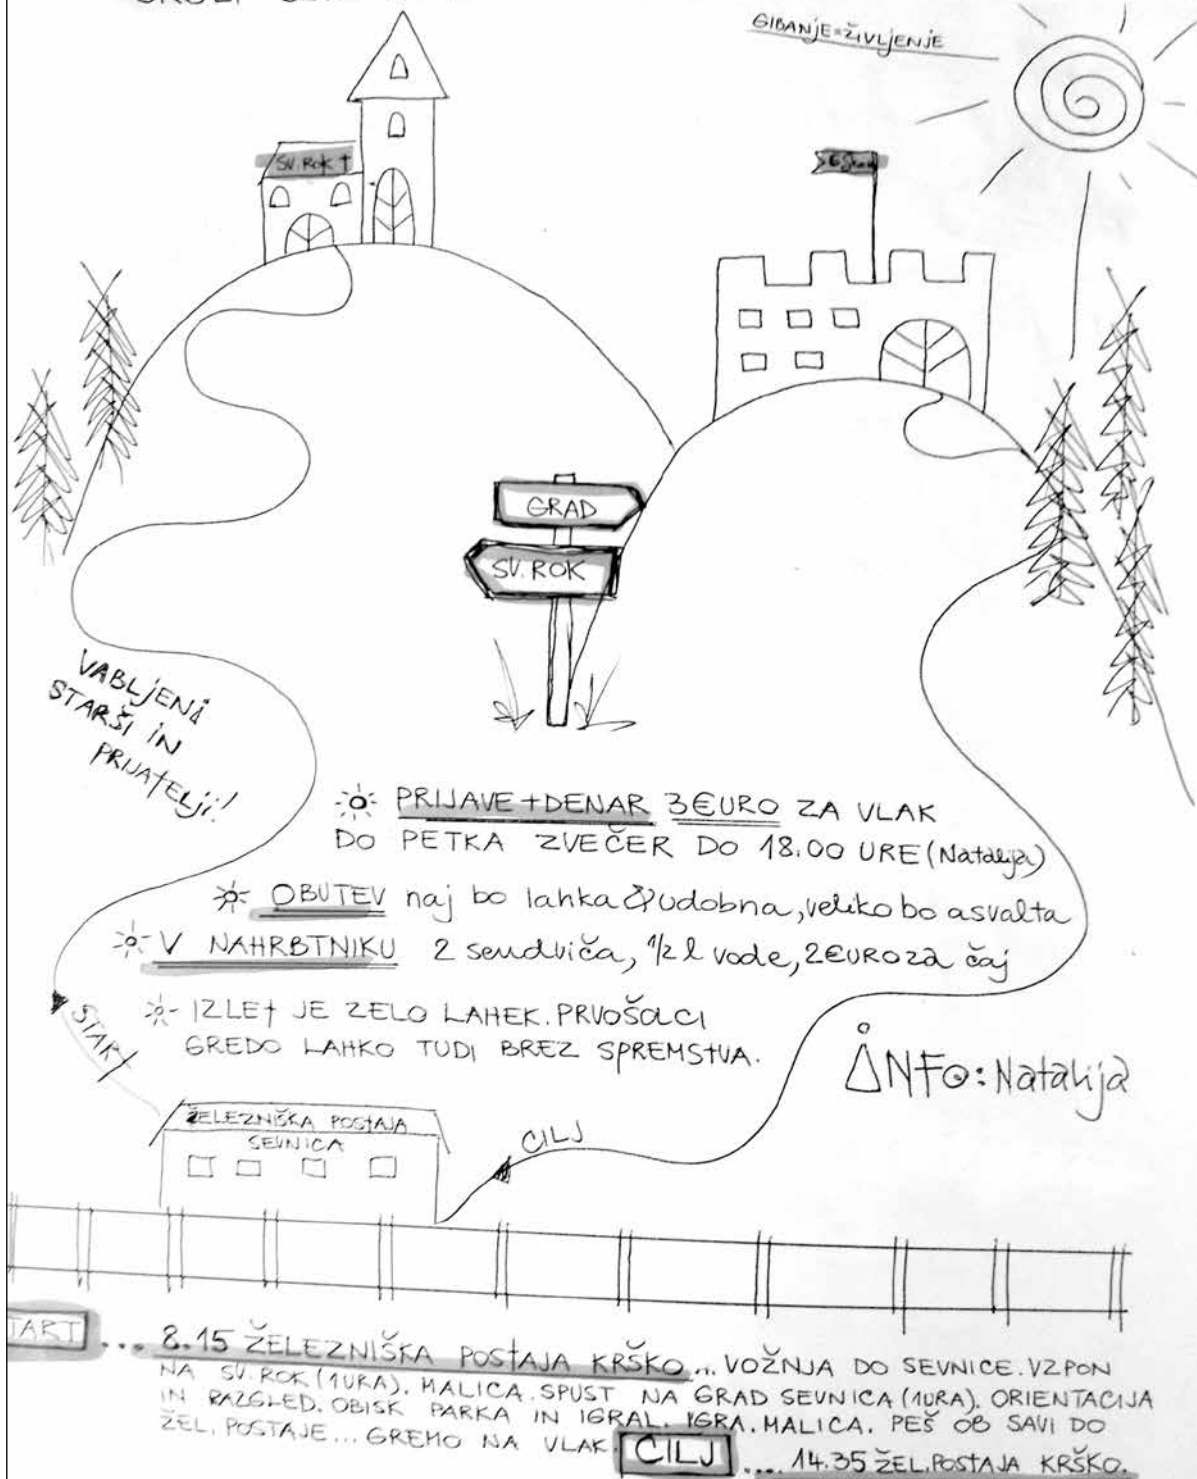 GIBANJE=ŽIVLJENJE
SV. ROK †
GRAD
SV. ROK
VABLJENI
STARŠI IN
PRIJATELJI!
PRIJAVE + DENAR 3 €URO ZA VLAK
DO PETKA ZVEČER DO 18.00 URE (Natalija)
OBUTEV naj bo lahka & udobna, veliko bo asvalta
V NAHRBTNIKU 2 sendviča, 1/2 l vode, 2 €URO za čaj
IZLET JE ZELO LAHEK. PRVOŠOLCI
GREDO LAHKO TUDI BREZ SPREMSTVA.
START
INFO: Natalija
ŽELEZNIŠKA POSTAJA
SEVNICA
CILJ
TART ... 8.15 ŽELEZNIŠKA POSTAJA KRŠKO... VOŽNJA DO SEVNICE. VZPON
NA SV. ROK (1URA). MALICA. SPUST NA GRAD SEVNICA (1URA). ORIENTACIJA
IN RAZGLED. OBISK PARKA IN IGRAL. IGRA. MALICA. PEŠ OB SAVI DO
ŽEL. POSTAJE... GREMO NA VLAK. CILJ .... 14.35 ŽEL. POSTAJA KRŠKO.